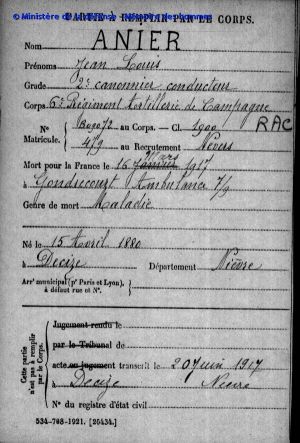 © Ministère de la Défense - Mémoire des hommes
PARTIE À REMPLIR PAR LE CORPS.
Nom ANIER
Prénoms Jean Louis
Grade 2e canonnier conducteur
Corps 6e Régiment d'Artillerie de Campagne
RAC
N° Matricule. au Corps. — Cl. 1900
479 au Recrutement Nevers
Mars
Mort pour la France le 16 Janvier 1917
à Gondrecourt Ambulance 7/9
Genre de mort Maladie
Né le 15 Avril 1880
à Decize Département Nièvre
Arrt municipal (pr Paris et Lyon),
à défaut rue et N°.
Cette partie n'est pas à remplir par le Corps.
Jugement rendu le
par le Tribunal de
acte ou jugement transcrit le 20 Juin 1917
à Decize Nièvre
N° du registre d'état civil
534-708-1921. [26434.]